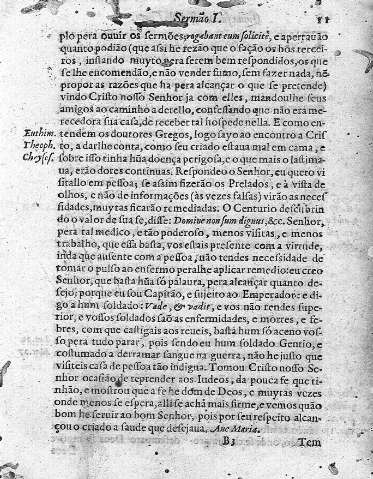 Sermão I. 11
plo pera ouuir os sermões, rogabant eum solicitè, e apertauão
quanto podião (que assi he rezão que o fação os bõs tercei
ros, instando muyto pera serem bem respondidos, os que
se lhe encomendão, e não vender fumo, sem fazer nada, nē
propor as razões que ha pera alcançar o que se pretende)
vindo Cristo nosso Senhor ja com elles, mandoulhe seus
amigos ao caminho a detello, confessando que não era me-
recedora sua casa, de receber tal hospede nella. E como en-
Euthim. tendem os doutores Gregos, logo sayo ao encontro a Cris
Theoph. to, a darlhe conta, como seu criado estaua mal em cama, e
Chrysos. sobre isso tinha hũa doença perigosa, e o que mais o lastima-
ua, erão dores continuas. Respondeo o Senhor, eu quero vi
sitallo em pessoa; se assim fizerão os Prelados, e à vista de
olhos, e não de informações (às vezes falsas) virão as neces
sidades, muytas ficarão remediadas. O Centurio descubrin
do o valor de sua fe, disse: Domine non sum dignus, &c. Senhor,
pera tal medico, e tão poderoso, menos visitas, e menos
trabalho, que essa basta, vos estais presente com a virtude,
inda que ausente com a pessoa, não tendes necessidade de
tomar o pulso ao enfermo peralhe aplicar remedio: eu creo
Senhor, que basta hũa só palaura, pera alcançar quanto de-
sejo, porque eu sou Capitão, e sujeito ao Emperador: e di-
go a hum soldado: Vade, & vadit, e vos não tendes supe-
rior, e vossos soldados são as enfermidades, e mortes, e fe-
bres, com que castigais aos reueis, basta hum só aceno vos-
so pera tudo parar, pois sendo eu hum soldado Gentio, e
costumado a derramar sangue na guerra, não he justo que
visiteis casa de pessoa tão indigna. Tomou Cristo nosso Se-
nhor ocasião de reprender aos Iudeos, da pouca fe que ti-
nhão, e mostrou que a fe he dom de Deos, e muytas vezes
onde menos se espera, alli se achà mais firme, e vemos quão
bom he seruir ao bom Senhor, pois por seu respeito alcan-
çou o criado a saude que desejaua, Aue Maria.
B3 Tem